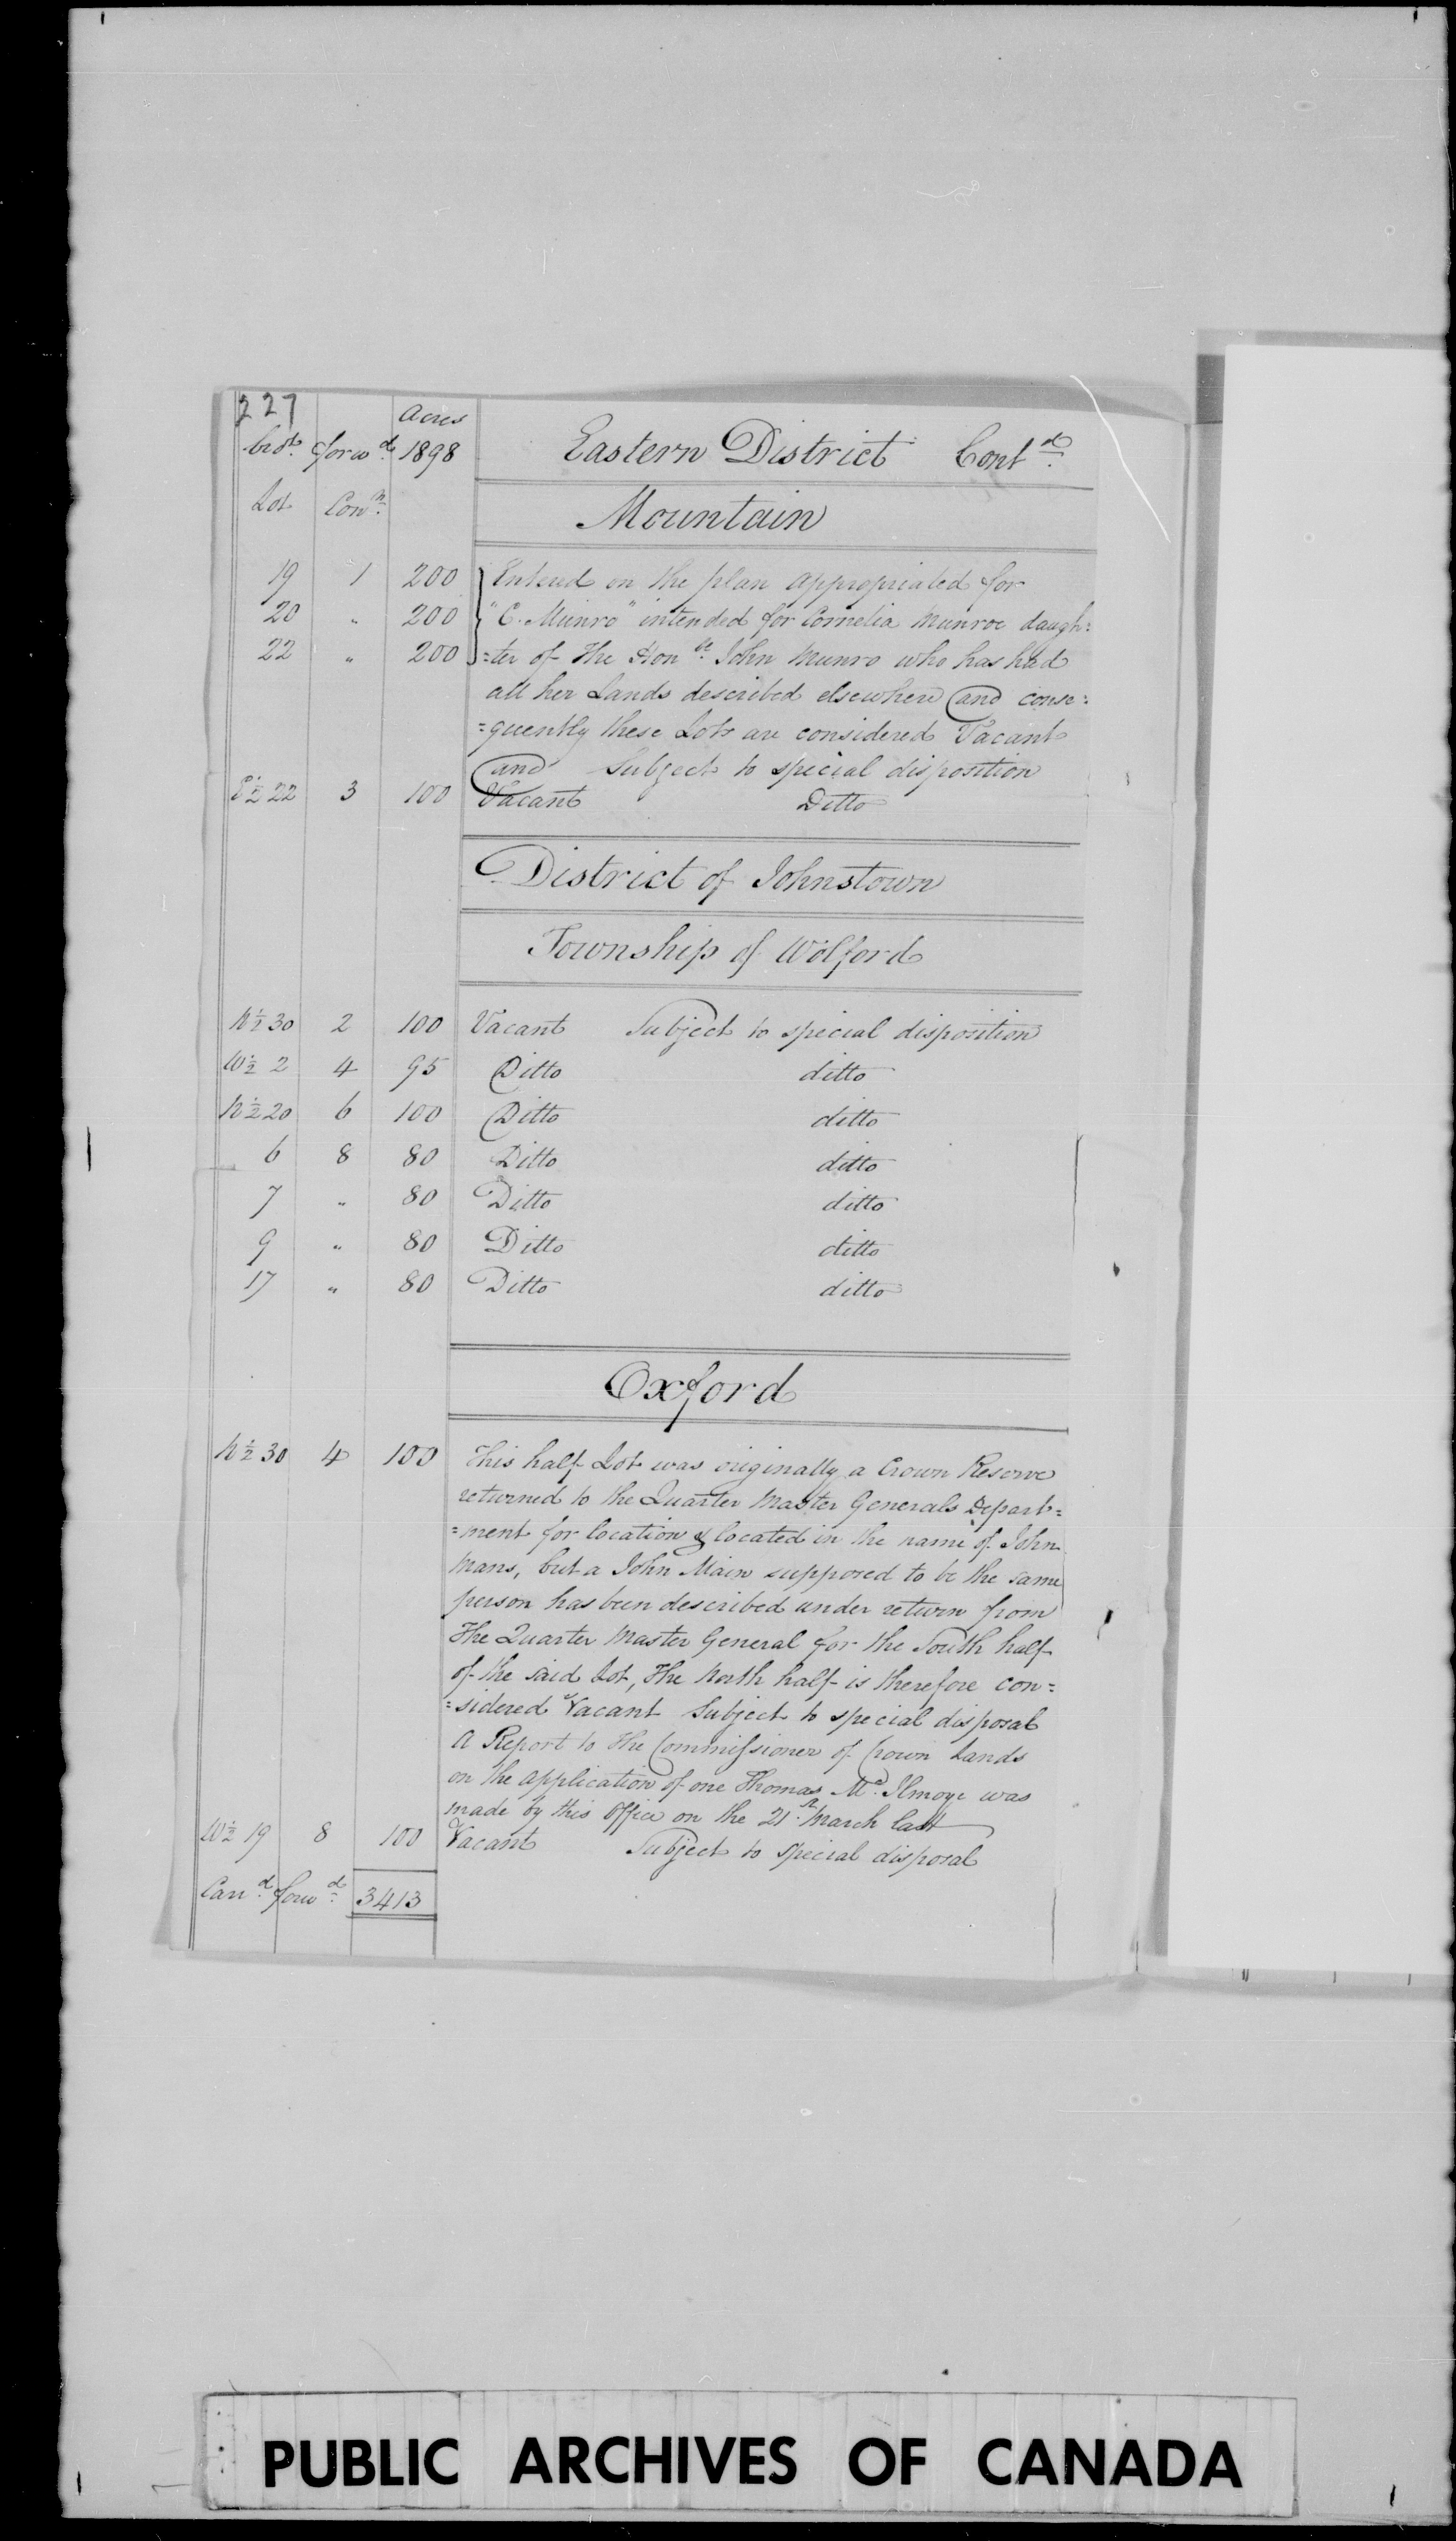 227 Acres
Brot. forwd. 1898 Eastern District Contd.
Lot Conn. Mountain
19 1 200 Entered on the plan appropriated for
20 " 200 "C. Munro" intended for Cornelia Munroe daugh=
22 " 200 =ter of The Honble. John Munro who has had
all her Lands described elsewhere and conse=
=quently these Lots are considered Vacant
and Subject to special disposition
E½ 22 3 100 Vacant Ditto
District of Johnstown
Township of Wolford
N½ 30 2 100 Vacant Subject to special disposition
W½ 2 4 95 Ditto ditto
N½ 20 6 100 Ditto ditto
6 8 80 Ditto ditto
7 " 80 Ditto ditto
9 " 80 Ditto ditto
17 " 80 Ditto ditto
Oxford
N½ 30 4 100 This half Lot was originally a Crown Reserve
returned to the Quarter Master Generals Depart=
=ment for location & located in the name of John
Mans, but a John Main supposed to be the same
person has been described under return from
The Quarter Master General for the South half
of the said Lot, The North half is therefore con=
=sidered Vacant Subject to special disposal
A Report to The Commissioner of Crown Lands
on the application of one Thomas Mc. Ilmoye was
made by this Office on the 21st. March last
W½ 19 8 100 Vacant Subject to special disposal
Carrd. forwd. 3413
PUBLIC ARCHIVES OF CANADA